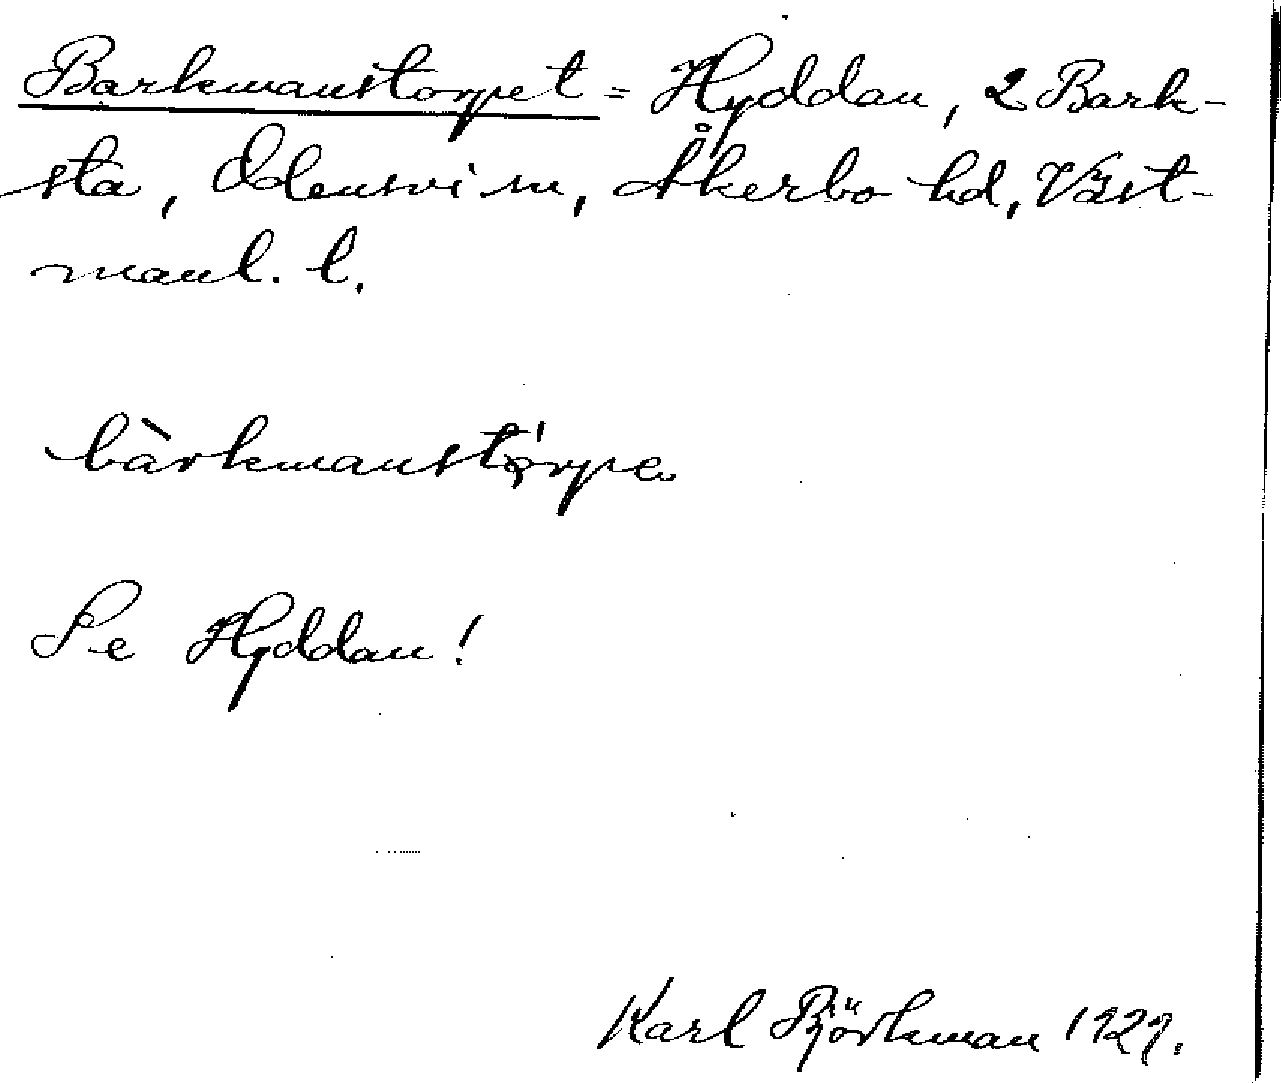 Barkmanstorpet = Hyddan, 2 Bark-
sta, Odensvi sn, Åkerbo hd, Väst-
manl. l.
bàrkmanstórpe
Se Hyddan!
Karl Björkman 1929.